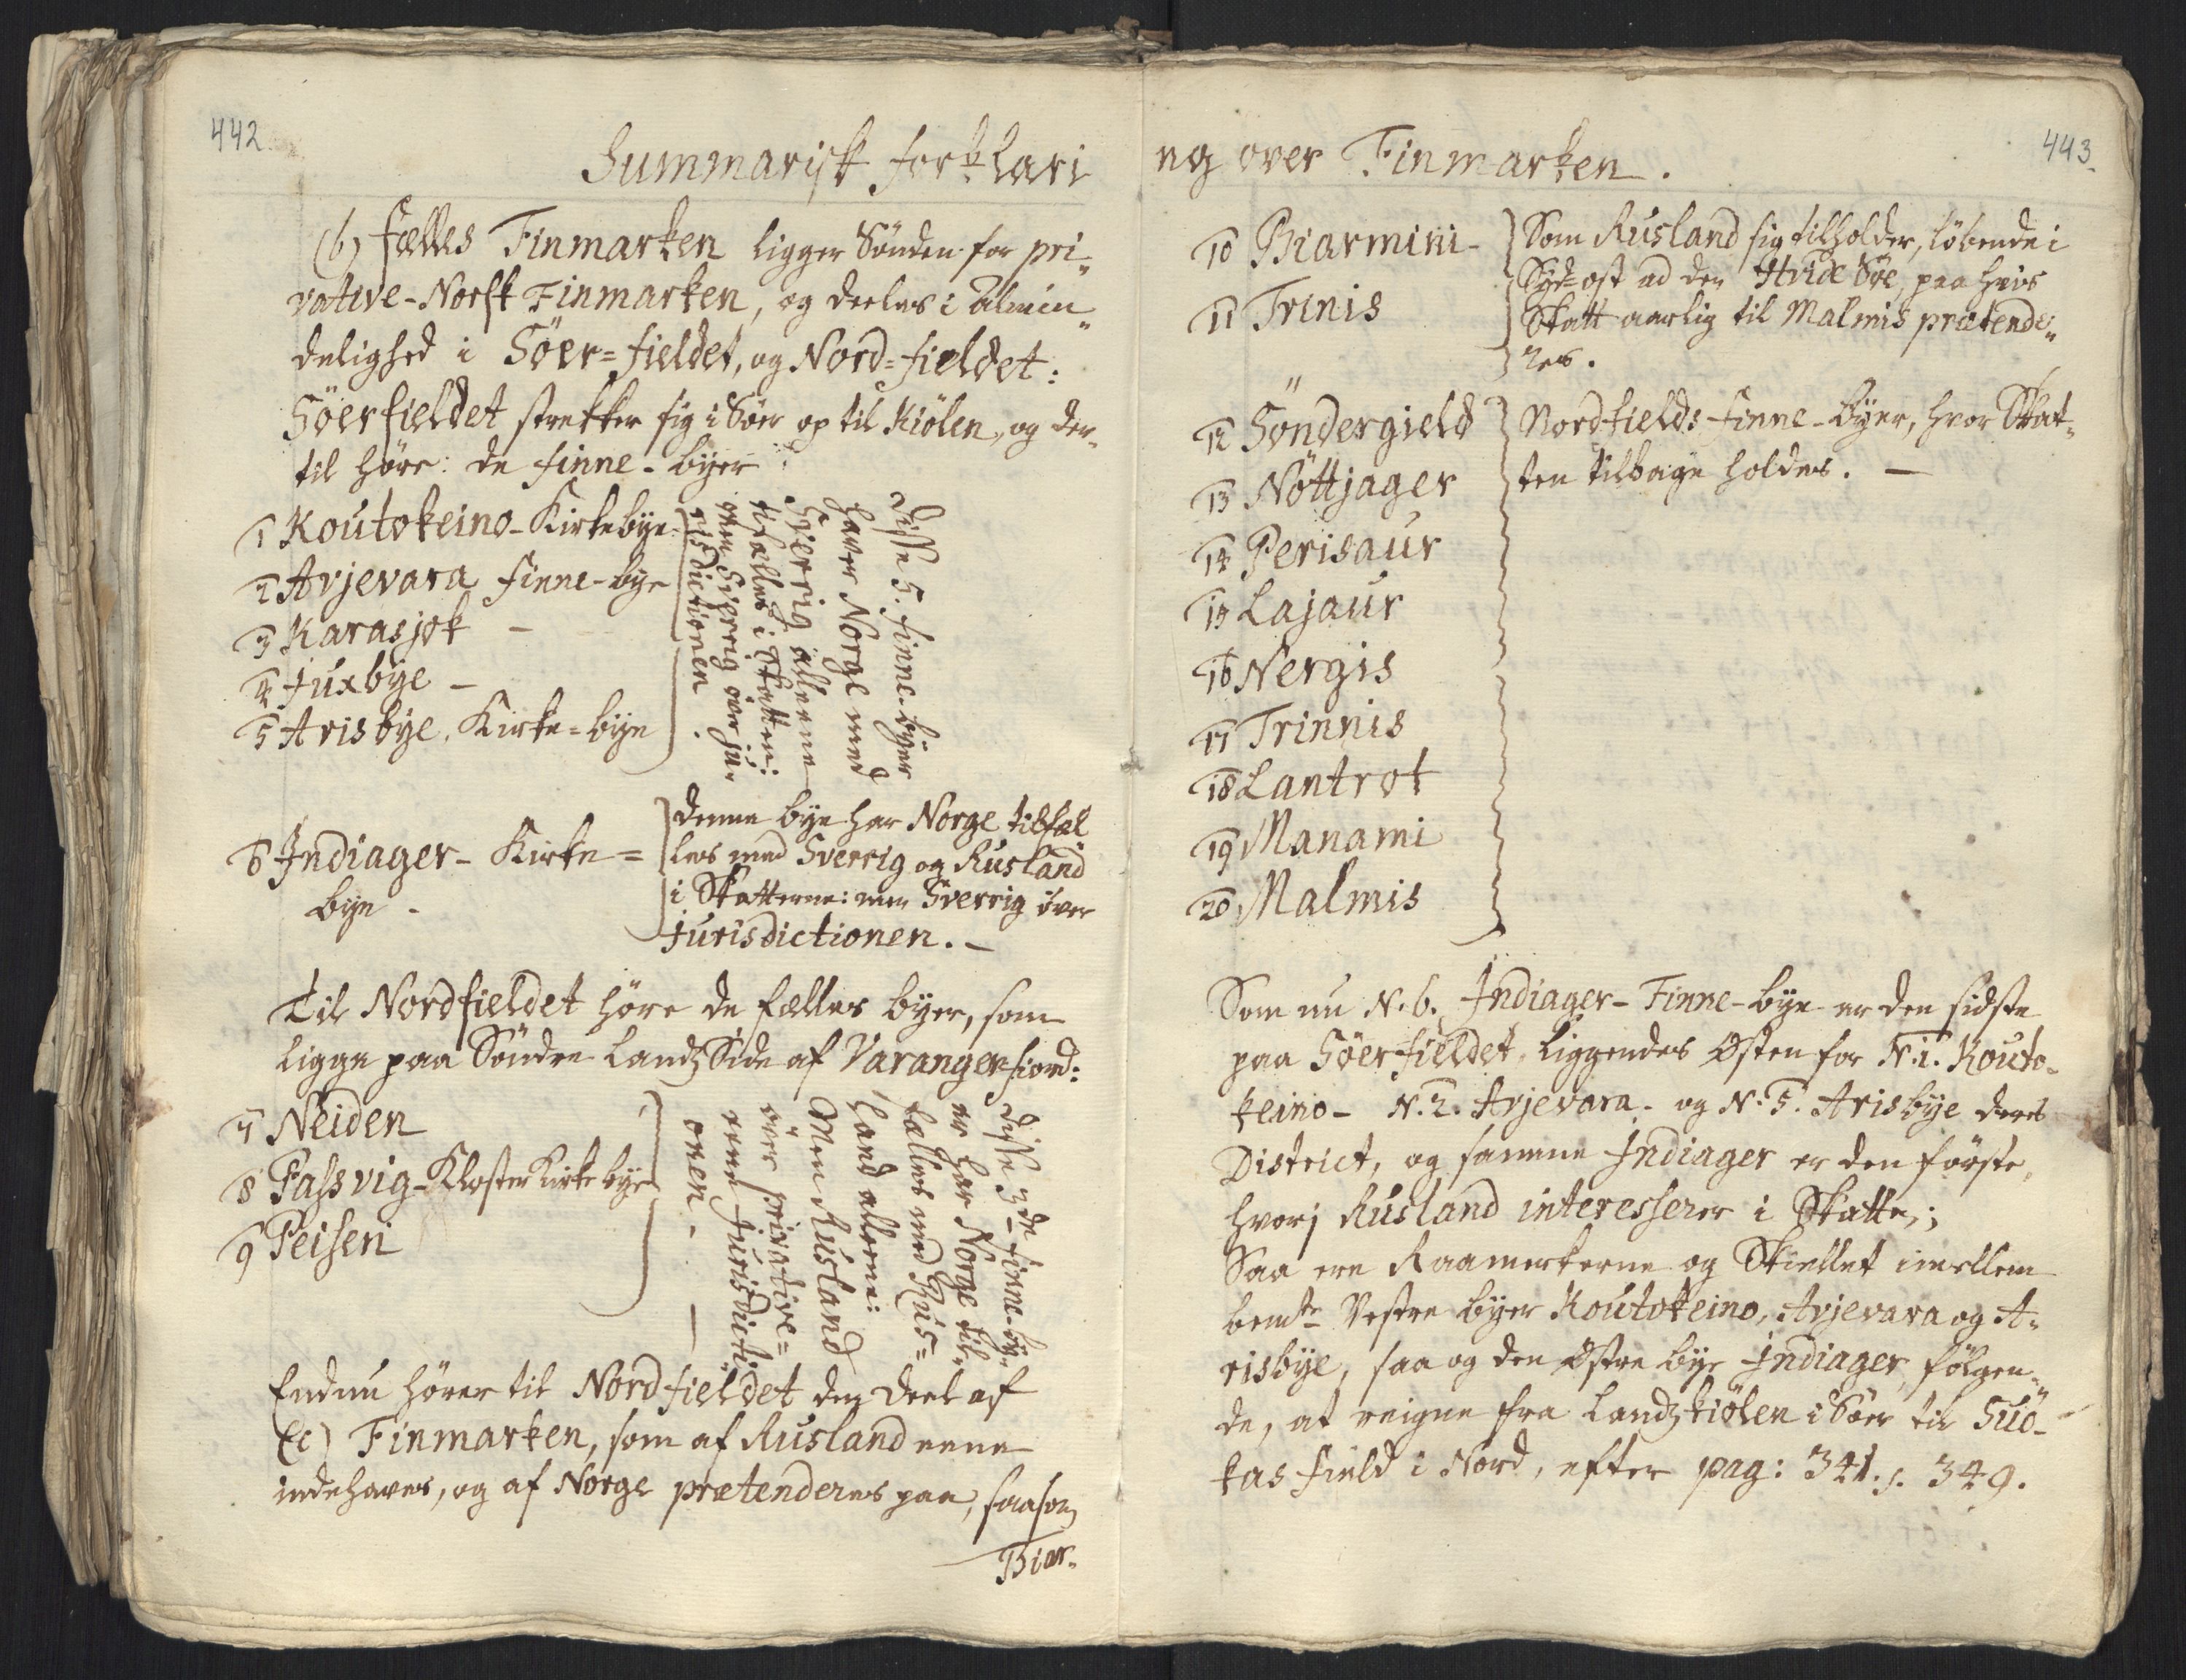 442
Summarisk forklari
(b) Fælles Finmarken ligger Sönden for pri„
vative-Norsk Finmarken, og deeles i Almin„
delighed i Söer=fieldet, og Nord=fieldet:
Söerfieldet strekker sig i Söer op til Kiölen, og der„
til høre: de finne-byer:
1 Koutokeino-Kirkebye
2 Avjevara finne-bye
3 Karasjok –
4 Juxbye –
5 Arisbye. Kirke=bye
disse 5. finne-byer
haver Norge med
Sverrig alleene
tifælles i Skatten:
men Sverrig over ju„
risdictionen.
6 Indiager- Kirke=
bye -
denne bye har Norge tilfæl
les med Sverrig og Rusland
i Skatterne: men Sverrig över
Jurisdictionen. –
Til Nordfieldet höre de fælles byer, som
ligge paa Söndre LandzSide af Varangerfiord:
7 Neiden
8 Passvig-Kloster Kirkebye
9 Peisen
disse 3de finne-by„
er har Norge til„
fælles med Rus=
land alleene:
Men Rusland
över privative=
rene Jurisdicti
onen. –
Endnu hører til Nordfieldet den deel af
(c) Finmarken, som af Rusland eene
indehaves, og af Norge prætenderes paa, saasom
Biar„
443
ng over Finmarken.
10 Biarmini-
11 Trinis
Som Rusland sig tilholder, löbende i
Syd=ost ad den Hvide Söe, paa hvis
Skatt aarlig til Malmis prætende„
res.
12 Söndergield
13 Nöttjager
14 Perisaur
15 Lajaur
16 Nergis
17 Trinnis
18 Lantrot
19 Manami
20 Malmis
Nordfields finne-byer, hvor Skat„
ten tilbage holdes. –
Som nu N. 6. Indiager-Finne-bye er den sidste
paa Söerfieldet liggendes Østen for N. 1. Kouto„
keino- N. 2. Avjevara- og N. 5. Arisbye deres
District, og samme Indiager er den förste,
hvorj Rusland interesserer i Skatte,;
Saa ere Raamerkerne og Skiellet imellem
bemte Vestre byer Koutokeino, Avjevara og A„
risbye, saa og den Østre bye Indiager, fölgen„
de, at reigne fra Landzkiölen i Söer til Suo-
kas field i Nord, efter pag: 341. s. 349.